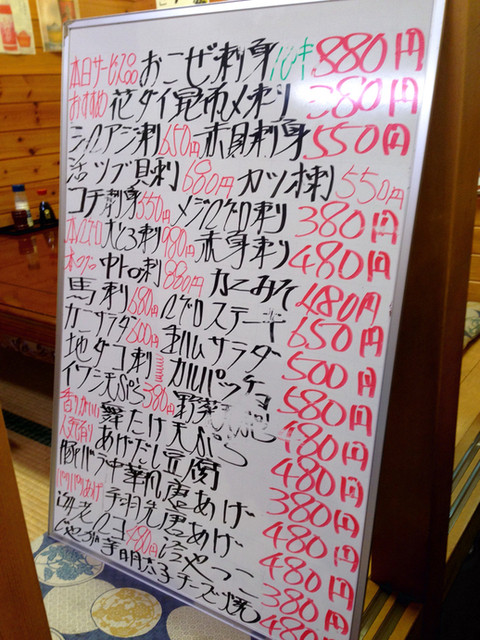 本日サービス品 おこぜ刺身 880円
おすすめ 花ダイ昆布〆刺 380円
シロアジ刺 650円 赤貝刺身 550円
活ツブ貝刺 680円 カツオ刺 550円
コチ刺身 650円 メジマグロ刺 380円
本マグロ 大とろ刺 980円 赤身刺 480円
本マグロ 中トロ刺 880円 カニみそ 480円
馬刺 680円 マグロステーキ 650円
カニサラダ 600円 生ハムサラダ 500円
地ダコ刺 カルパッチョ 580円
イワシ天ぷら 380円 野菜 480円
舞たけ天ぷら 480円
あげだし豆腐 380円
豚バラ中華風唐あげ 480円
手羽先唐あげ 480円
480円 冷やっこ 380円
明太子チーズ焼 480円